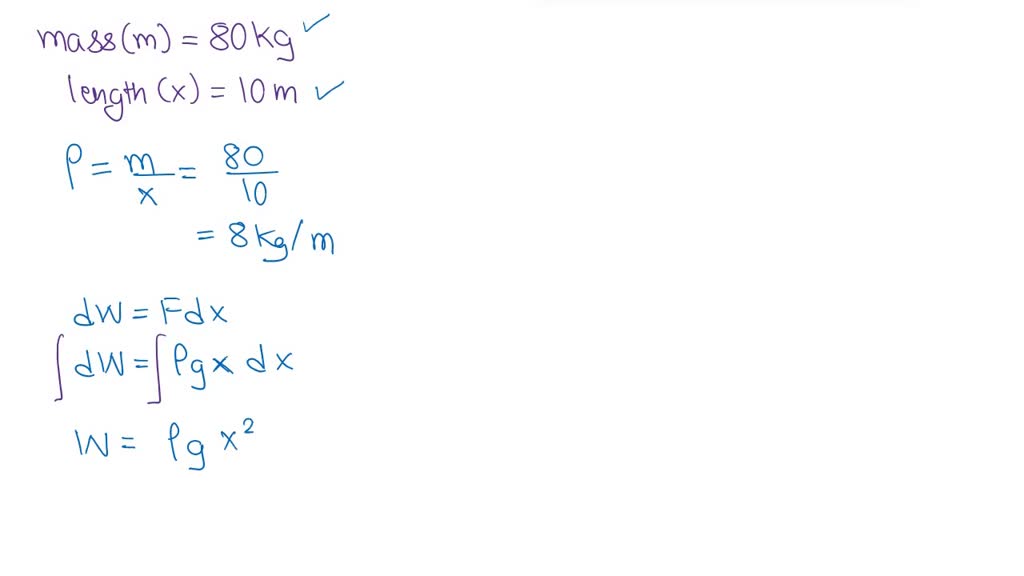 mass(m) = 80kg ✓
length (x) = 10 m ✓
ρ = m/x = 80/10
= 8kg/m
dW = Fdx
∫dW = ∫ρgx dx
W = ρg x²